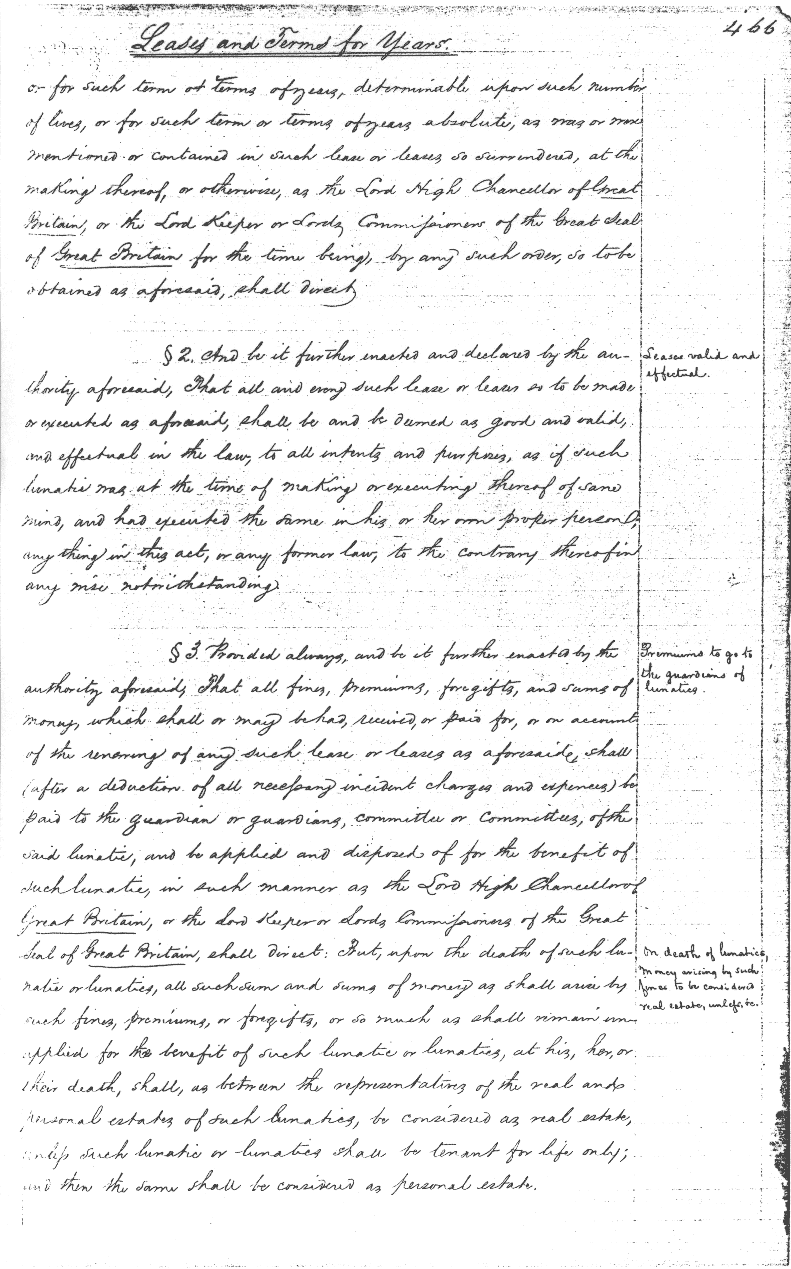 466
Leases and Terms for Years.
or for such term or terms of years, determinable upon such number
of lives, or for such term or terms of years absolute, as was or were
mentioned or contained in such lease or leases so surrendered, at the
making thereof, or otherwise, as the Lord High Chancellor of Great
Britain, or the Lord Keeper or Lords Commissioners of the Great Seal
of Great Britain for the time being, by any such order, so to be
obtained as aforesaid, shall direct,
§ 2. And be it further enacted and declared by the au-
thority aforesaid, That all and every such lease or leases so to be made
or executed as aforesaid, shall be and be deemed as good and valid,
and effectual in the law, to all intents and purposes, as if such
lunatic was at the time of making or executing thereof of sane
mind, and had executed the same in his or her own proper person;
any thing in this act, or any former law, to the contrary thereof in
any wise notwithstanding
Leases valid and
effectual.
§ 3. Provided always, and be it further enacted by the
authority aforesaid, That all fines, premiums, foregifts, and sums of
money, which shall or may be had, received, or paid for, or on account
of the renewing of any such lease or leases as aforesaid, shall
(after a deduction of all necessary incident charges and expences) be
paid to the guardian or guardians, committee or Committees, of the
said lunatic, and be applied and disposed of for the benefit of
such lunatic, in such manner as the Lord High Chancellor of
Great Britain, or the Lord Keeper or Lords Commissioners of the Great
Seal of Great Britain, shall direct: But, upon the death of such lu-
natic or lunatics, all such sum and sums of money as shall arise by
such fines, premiums, or foregifts, or so much as shall remain un-
applied for the benefit of such lunatic or lunatics, at his, her, or
their death, shall, as between the representatives of the real and
personal estates of such lunatics, be considered as real estate,
unless such lunatic or lunatics shall be tenant for life only;
and then the same shall be considered as personal estate.
Premiums to go to
the guardians of
lunatics.
On death of lunatics,
money arising by such
fines to be considered
real estate, unless, &c.